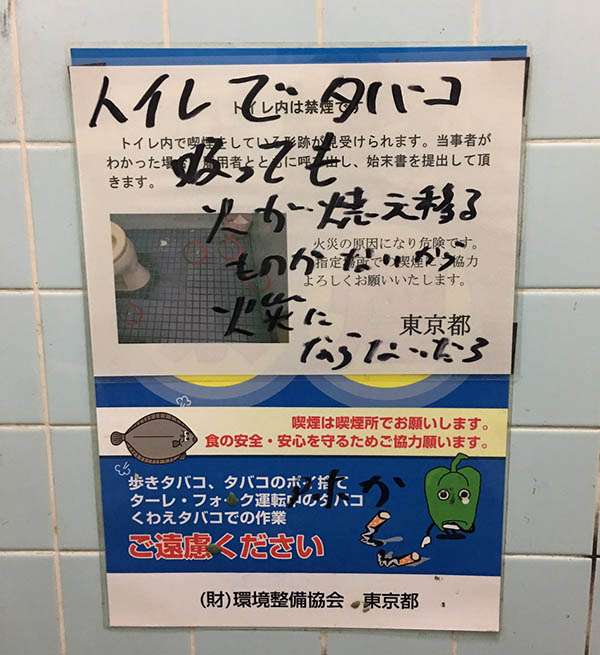 トイレでタバコ
トイレ内は禁煙です
トイレ内で喫煙をしている形跡が見受けられます。当事者が
わかった場合、用者とともに呼び出し、始末書を提出して頂
きます。
吸っても
火が焼え移る
ものがないから
火災に
ならないだろ
火災の原因になり危険です。
指定場所での喫煙に、協力
よろしくお願いいたします。
東京都
喫煙は喫煙所でお願いします。
食の安全・安心を守るためご協力願います。
歩きタバコ、タバコのポイ捨て
ターレ・フォーク運転中のタバコ
くわえタバコでの作業
ご遠慮ください
(財)環境整備協会 東京都